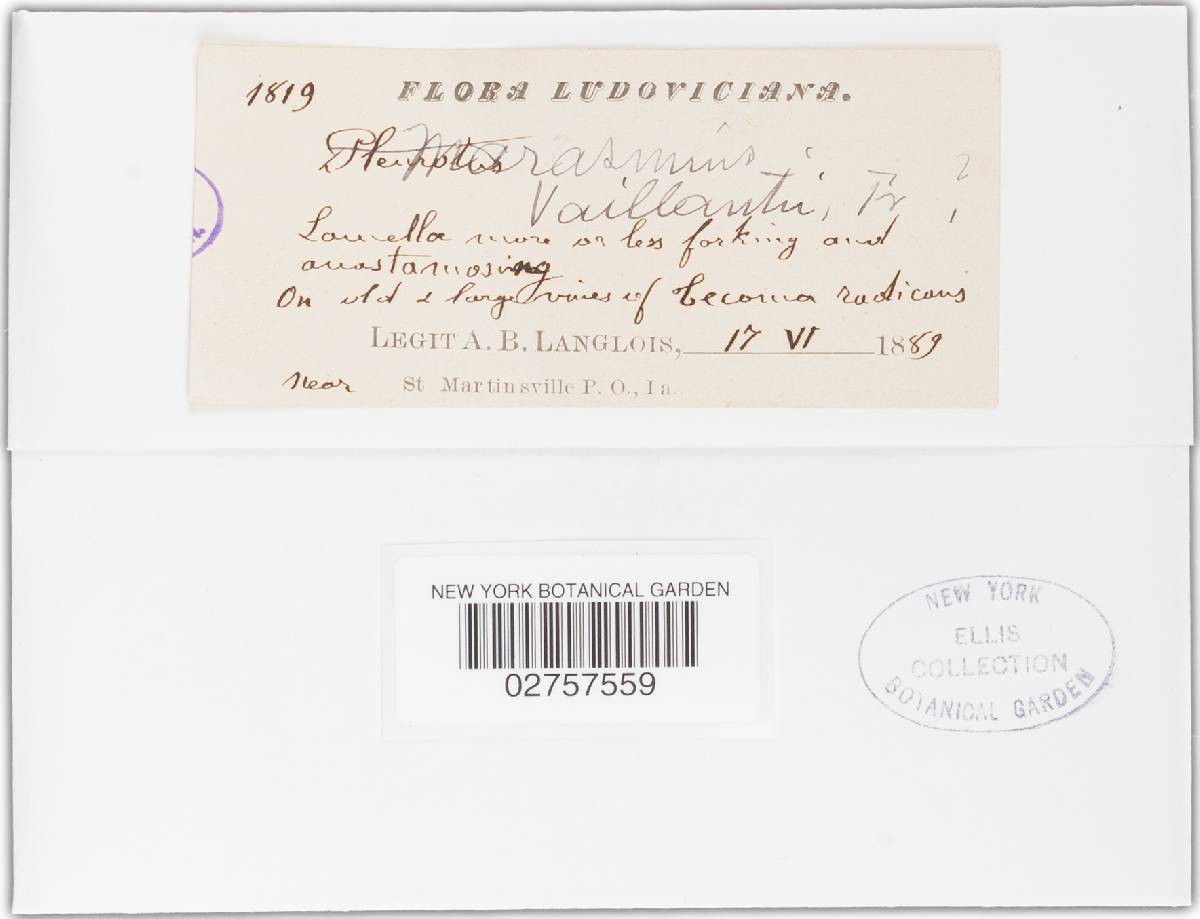 1819 FLORA LUDOVICIANA.
Pleurotus Marasmius
Vaillantii, Fr ?
Lamella more or less forking and
anastamosing
On old & large vines of Tecoma radicans
LEGIT A. B. LANGLOIS, 17 VI 1889
Near St Martinsville P. O., La.
NEW YORK BOTANICAL GARDEN
02757559
NEW YORK
ELLIS
COLLECTION
BOTANICAL GARDEN